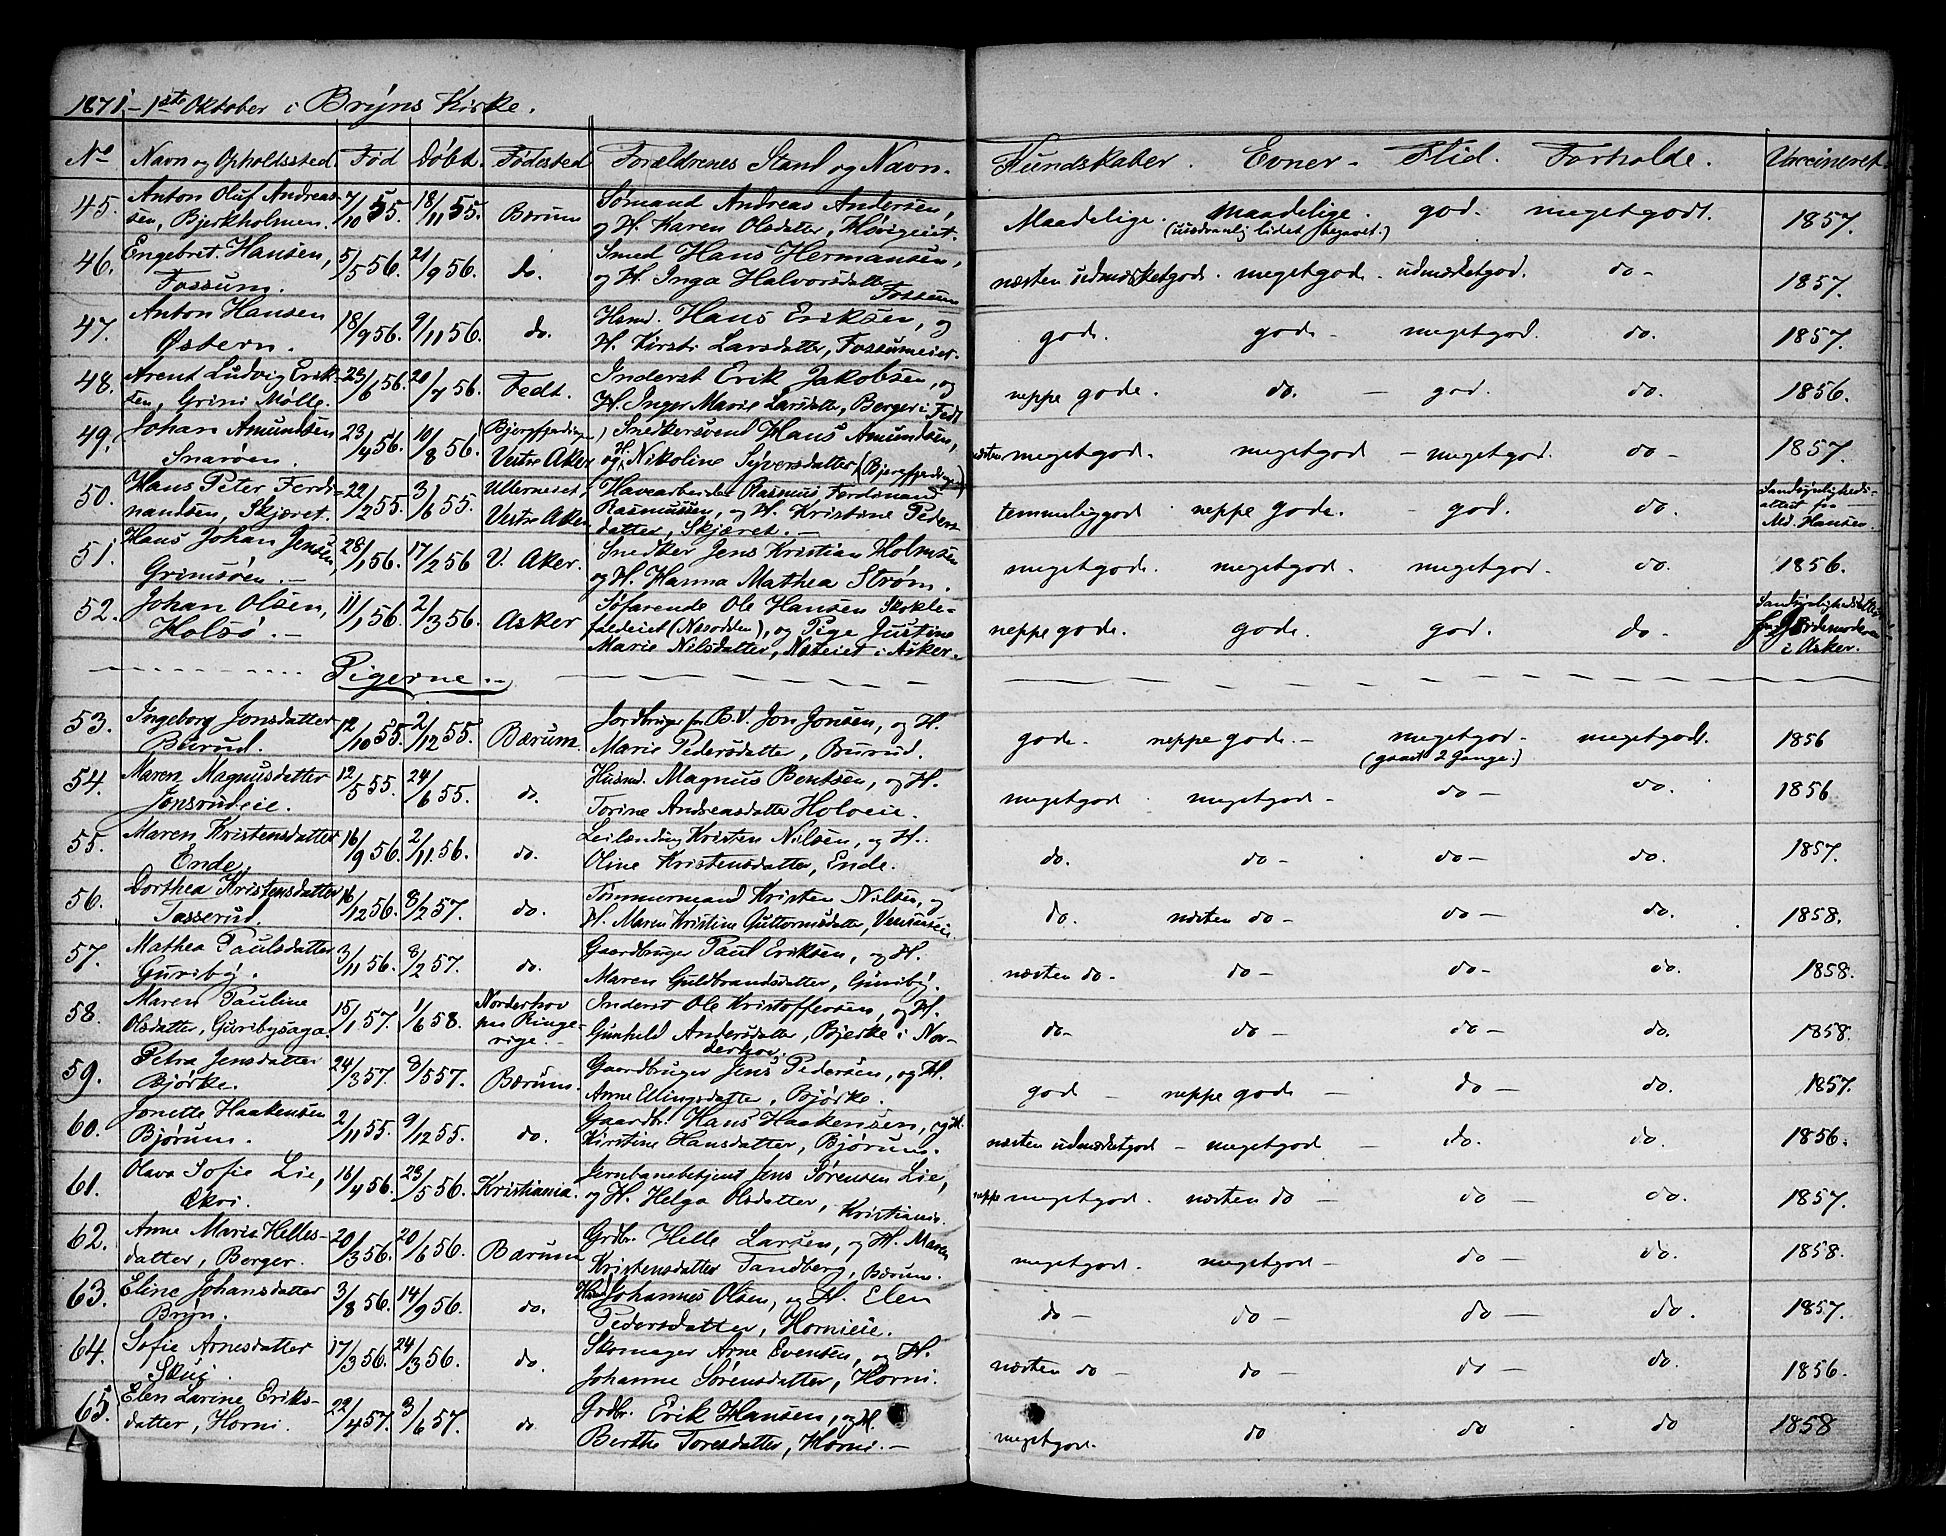 1871.- 1ste Oktober i Brÿns Kirke.
No Navn og Opholdssted Fød Døbt. Fødested Forældrenes Stand og Navn. Kundskaber. Evner - Flid. Forholde. Vaccineret
45. Anton Oluf Andreas- 7/10 55. 18/11 55. Bærum Sømand Andreas Andersen, Maadelige. Maadelige. god. megetgodt. 1857.
sen, Bjerkholmen. og H. Karen Olsdatter, Høvigeiet. (usædvanlig lidet begavet.)
46. Engebret Hansen, 5/5 56. 21/9 56. do. Smed Hans Hermansen, næsten udmærketgod. megetgod - udmærketgod. do - 1857.
Fossum. og H. Inga Halvorsdatter
Fossum
47. Anton Hansen 18/9 56. 9/11 56. do. Husmd. Hans Eriksen, og god. god - megetgod. do. 1857.
Østern. H. Kirsti Larsdatter, Fossumeiet.
48. Arent Ludvig Erik- 23/6 56. 20/7 56. Fedt. Inderst Erik Jakobsen, og neppe gode. do. - god. do. 1856.
sen, Grini Mølle. H. Inger Marie Larsdatter, Berger i Fedt
49. Johan Amundsen 23/4 56. 10/8 56. (Bjergfjerdingen) Snedkersvend Hans Amundsen, næsten megetgod. megetgod - megetgod. do - 1857.
Snarøen. Vestre Aker og H. Nikoline Syversdatter (Bjergfjerdingen)
50. Hans Peter Ferdi- 22/2 55. 3/6 55. Ullerneiet, Havearbeider Rasmus Ferdinand temmeliggod - neppe gode. - god. do. Sandsynligheds-
nandsen, Skjæret. Vestre Aker Rasmussen, og H. Kristine Peders- attest fra
datter, Skjæret. - Md. Hansen.
51. Hans Johan Jensen, 28/1 56. 17/2 56 V. Aker. Snedker Jens Kristian Holmsen megetgod. megetgod. megetgod. do. 1856.
Grimsøen. - og H. Hanna Mathea Strøm.
52. Johan Olsen, 11/1 56. 2/3 56. Asker Søfarende Ole Hansen Skokle- neppe gode. gode. god. do -
Holsø. - faldeiet (Nesodden), og Pige Justine i Asker.
Marie Nilsdatter, Næseiet i Asker.
Pigerne. -
53. Ingeborg Jonsdatter 12/10 55. 2/12 55. Bærum. Jordbruger paa B.V. Jon Jonsen, og H. gode. neppe gode. - megetgod - megetgodt. 1856
Burud. Marie Pedersdatter, Burud. (gaaet 2 Gange.)
54. Maren Magnusdatter 12/5 55. 24/6 55. do. Husmd. Magnus Bentsen, og H. megetgod. megetgod - do - do. 1856
Jonsrudeie. Torine Andreasdatter Holoeie.
55. Maren Kristensdatter 16/9 56. 2/11 56. do. Leilænding Kristen Nilsen, og H. do. do - do - do. 1857.
Ende. Oline Kristensdatter, Ende.
56. Dorthea Kristensdatter 16/12 56. 8/2 57. do. Tømmermand Kristen Nilsen, og do. næsten do - do - do. 1858.
Tasserud. H. Maren Kristine Guttormsdatter,
57. Mathea Paulsdatter 3/11 56. 8/2 57. do. Gaardbruger Paul Eriksen, og H. næsten do. do - do - do. 1858.
Guribÿ. Maren Guldbrandsdatter, Guribÿ.
58. Maren Pauline 15/1 57. 1/6 58. Norderhov Inderst Ole Kristoffersen, og H. do - do - do - do. 1858.
Olsdatter, Guribysaga. paa Ringe- Gunhild Andersdatter, Bjerke i Nor-
rige. - derhov.
59. Petra Jensdatter 24/3 57. 8/5 57. Bærum. Gaardbruger Jens Pedersen, og H. god - neppe gode - do - do. 1857.
Bjørke. Anne Elingsdatter, Bjørke.
60. Jonette Haakensen 2/11 55. 9/12 55. do. Gaardbr. Hans Haakensen, og H. næsten udmærketgod - megetgod - do. do. 1856.
Bjørum. Kirstine Hansdatter, Bjørum.
61. Olava Sofie Lie, 15/4 56. 23/5 56. Kristiania. Jernbanebetjent Jens Sørensen Lie, neppe megetgod. næsten do - do - do. 1857.
Økri. og H. Helga Olsdatter, Kristiania.
62. Anne Marie Helles- 20/3 56. 20/6 56. Bærum Grdbr. Helle Larsen, og H. Maren megetgod. megetgod - do - do. 1858.
datter, Berger. Kristensdatter Tandberg, Bærum.
63. Eline Johansdatter 3/8 56. 14/9 56. do. Johannes Olsen, og H. Elen do - do - do - do. 1857.
Brÿn. Pedersdatter, Hornieie.
64. Sofie Arnesdatter 17/3 56. 24/3 56. do. Skomager Arne Evensen, og H. næsten do - do - do - do. 1856.
Skui. Johanne Sørensdatter, Horni.
65. Elen Larine Eriks- 22/4 57. 3/6 57. do Grdbr. Erik Hansen, og H. megetgod. do do do 1858
datter, Horni. Berthe Toresdatter, Horni. -